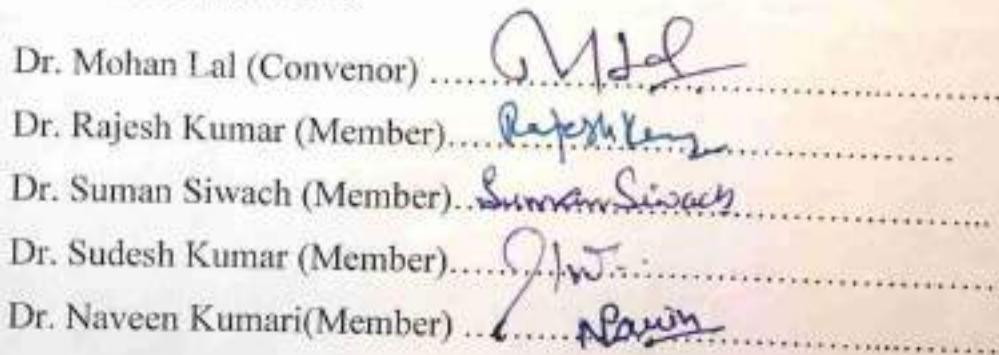 Dr. Mohan Lal (Convenor) ........ MLal ........
Dr. Rajesh Kumar (Member).... Rajesh Kumar ........
Dr. Suman Siwach (Member).. Suman Siwach ........
Dr. Sudesh Kumar (Member)............
Dr. Naveen Kumari(Member) ............